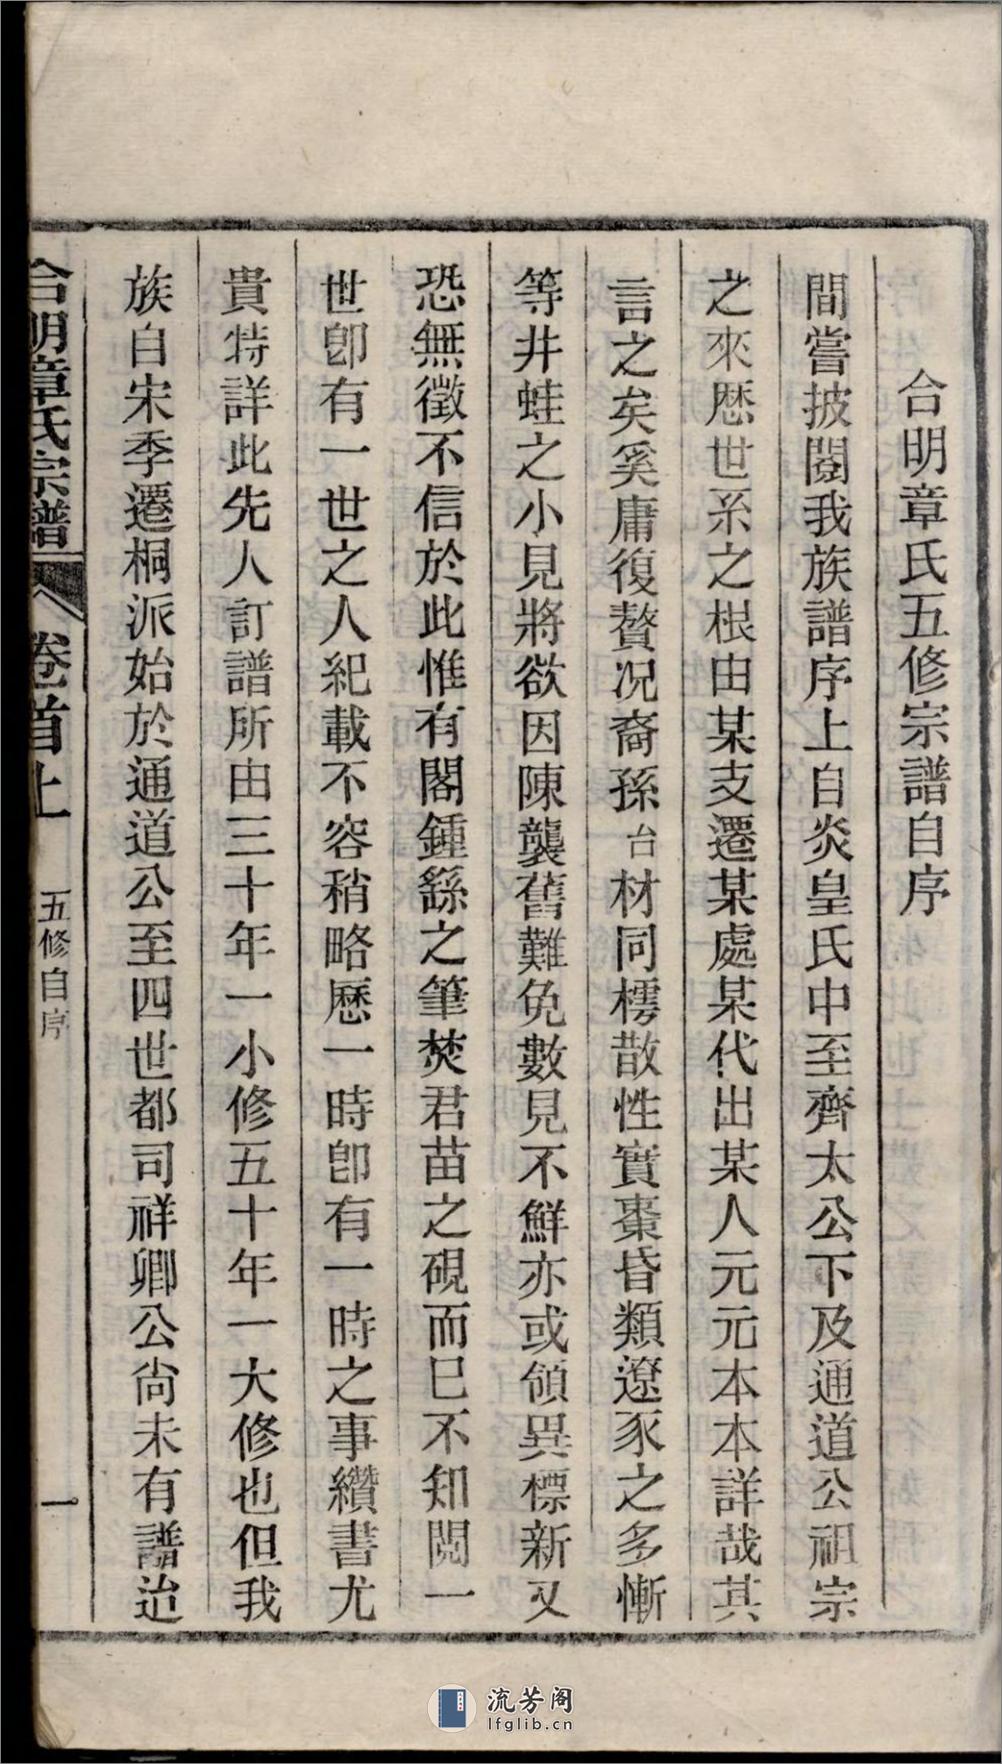 合明章氏五修宗譜自序
間嘗披閱我族譜序上自炎皇氏中至齊太公下及通道公祖宗
之來歷世系之根由某支遷某處某代出某人元元本本詳哉其
言之矣奚庸復贅况裔孫台材同樗散性實棗昏類遼豕之多慚
等井蛙之小見將欲因陳襲舊難免數見不鮮亦或領異標新又
恐無徵不信於此惟有閣鍾繇之筆焚君苗之硯而已不知閱一
世卽有一世之人紀載不容稍略歷一時卽有一時之事纘書尤
貴特詳此先人訂譜所由三十年一小修五十年一大修也但我
族自宋季遷桐派始於通道公至四世都司祥卿公尚未有譜迨
合明章氏宗譜 卷首上 五修自序 一
流芳阁
lfglib.cn